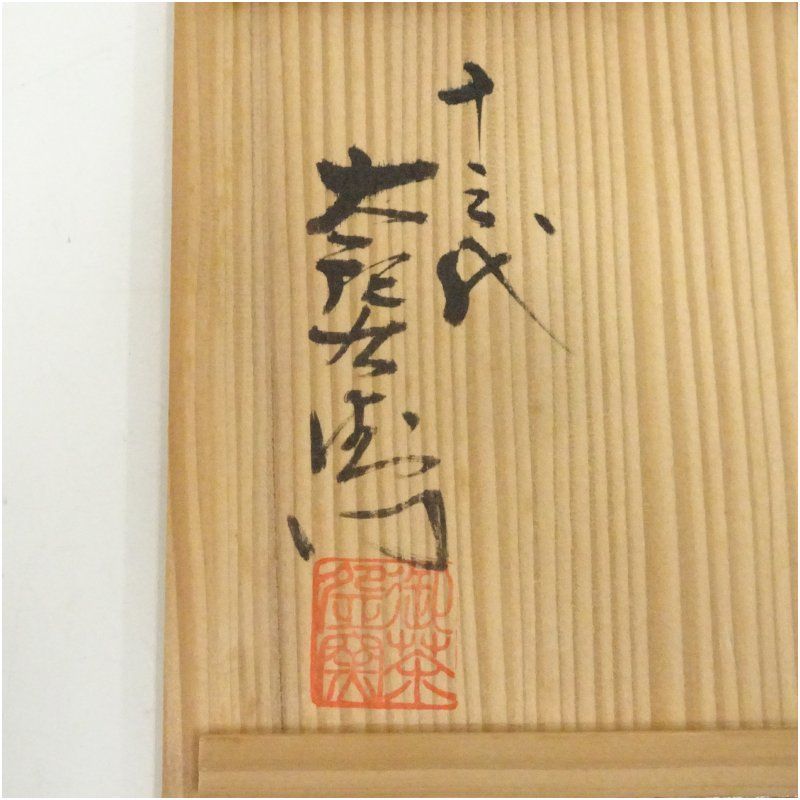 十三代
太郎右衛門
御茶
盌窯